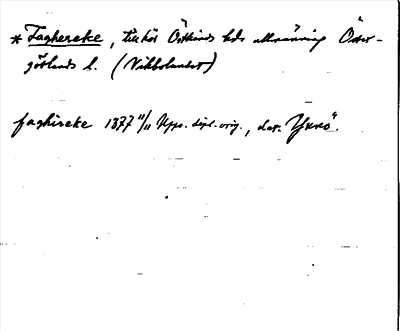 * Faghereke, tillhör Östkinds hds allmänning Öster-
götlands l. (Vikbolandet)
faghireke 1377 11/11 Upps. dipl. orig., dat. "Yxnö".